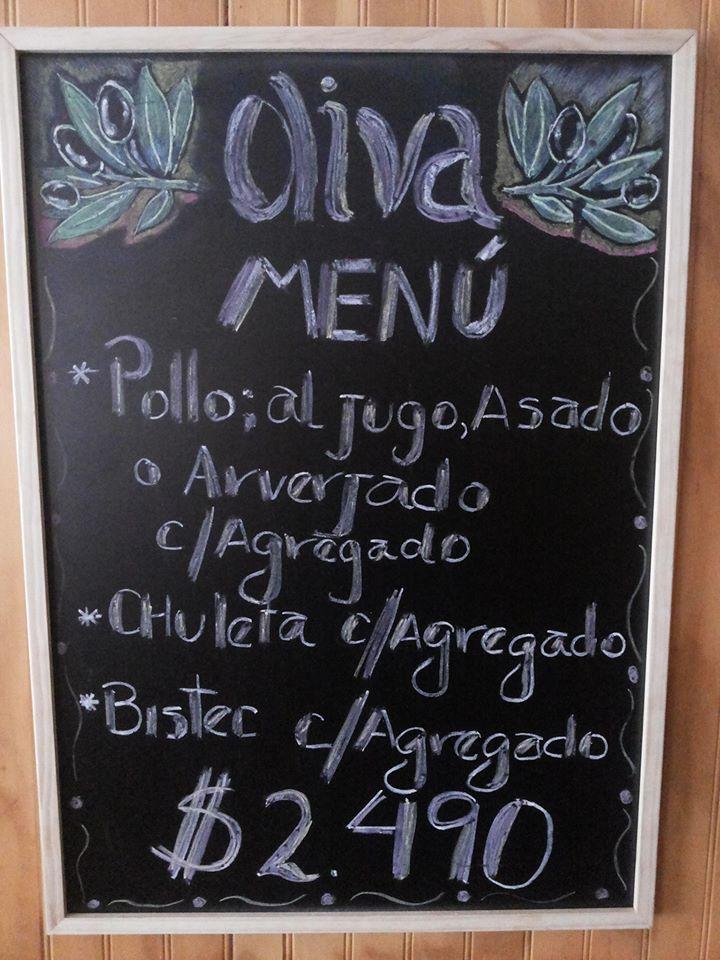 Oliva
MENÚ
*Pollo; al jugo, Asado
o Arverjado
c/Agregado
*CHuleta c/Agregado
*Bistec c/Agregado
$2.490